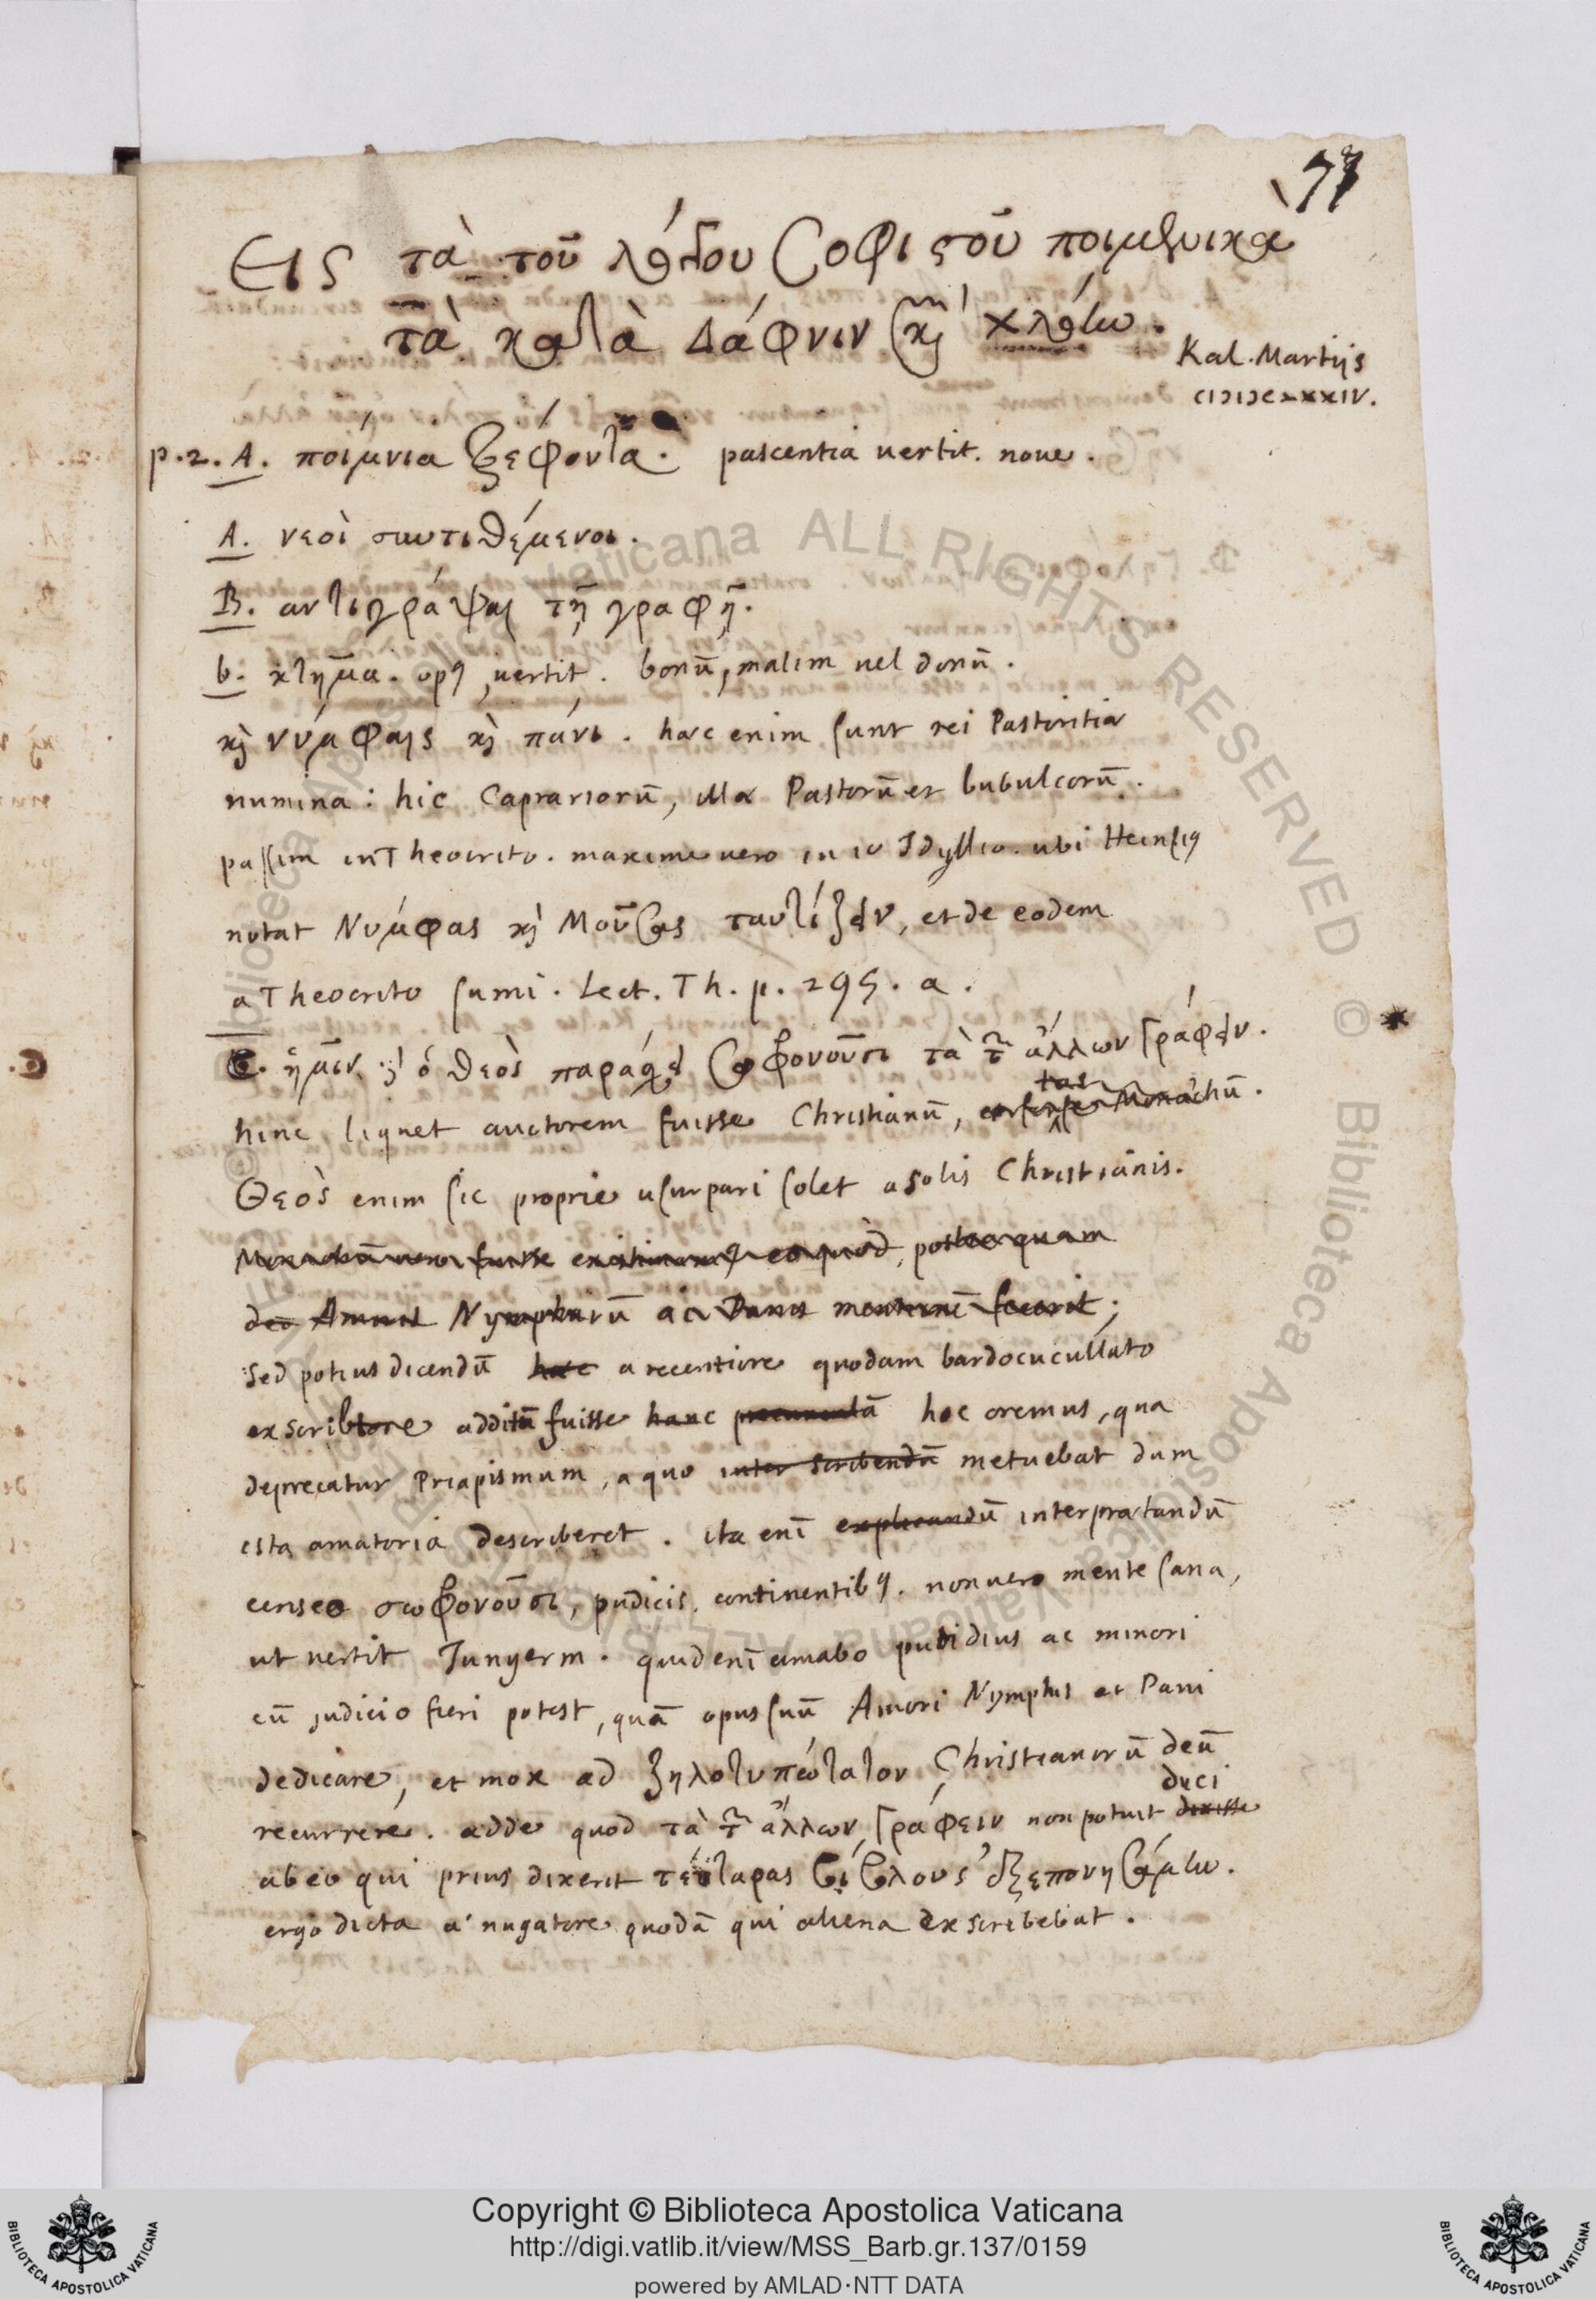 77
Εις τὰ τοῦ λόγγου Σοφιστοῦ ποιμενικὰ
τὰ κατὰ Δάφνιν καὶ Χλόην.
Kal. Martijs
CIↃIↃCXXXIV.
p. 2. A. ποίμνια τρέφοντα. pascentia vertit. nove.
A. νεοὶ συντιθέμενοι.
B. αντιγράψαι τῇ γραφῇ.
b. κτῆμα. opq vertit. bonū, malim vel donū.
καὶ νύμφαις καὶ πάνι. hæc enim sunt rei Pastoritiæ
numina: hic Caprariorū, illæ Pastorū et bubulcorū.
passim in Theocrito. maxime vero in Idyllio. ubi Heinsiq
notat Νυμφας καὶ Μούσας ταυτίζειν, et de eodem
a Theocrito sumi. Lect. Th. p. 295. a.
C. ἡμῖν δ' ὁ θεὸς παράσχοι σωφρονοῦσι τὰ τῶν ἄλλων γράφειν.
hinc liquet auctorem fuisse Christianū, Monachū.
Θεὸς enim sic proprie usurpari solet a solis Christianis.
Monachū vero fuisse existimamq eo quòd, postea quam
deo Amoris Nympharū ac Panos mentionē fecerit;
sed potius dicendū hæc a recentiore quodam bardocucullato
exscribtore additū fuisse hanc hoc oremus, qua
deprecatur Priapismum, a quo inter scribendū metuebat dum
ista amatoria describeret. ita enī explicandū interprætandū
censeo σωφρονοῦσι, pudicis. continentibq. non vero mente sana,
ut vertit Jungerm. quid enī amabo putidius ac minori
cū judicio fieri potest, quā opus suū Amori Nymphis et Pani
dedicare, et mox ad ζηλοτυπώτατον Christianorū deū
recurrere. adde quod τὰ τῶν ἄλλων γράφειν non potuit dixisse duci
ab eo qui prius dixerit τέτταρας βίβλους ἐξεπονησάμην.
ergo dicta a nugatore quodā qui aliena exscribebat.
Copyright © Biblioteca Apostolica Vaticana
http://digi.vatlib.it/view/MSS_Barb.gr.137/0159
powered by AMLAD·NTT DATA